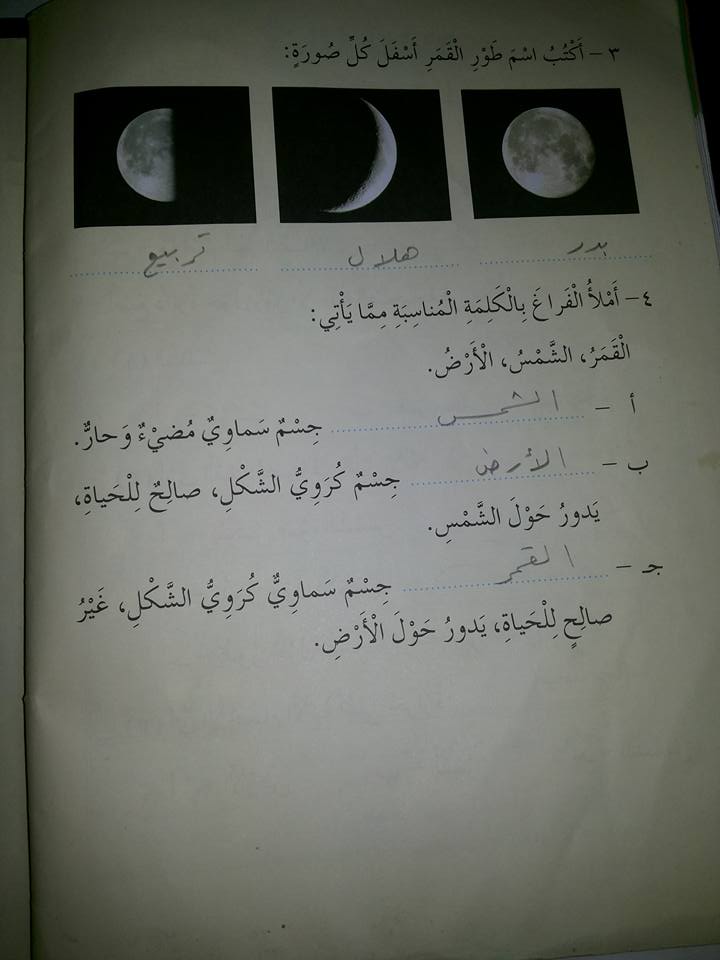 ٣ - أَكْتُبُ اسْمَ طَوْرِ الْقَمَرِ أَسْفَلَ كُلِّ صُورَةٍ:
بدر هلال تربيع
٤ - أَمْلأُ الْفَراغَ بِالْكَلِمَةِ الْمُناسِبَةِ مِمَّا يَأْتِي:
الْقَمَرُ، الشَّمْسُ، الْأَرْضُ.
أ - الشمس جِسْمٌ سَماوِيٌّ مُضيْءٌ وَحارٌّ.
ب - الأرض جِسْمٌ كُرَوِيُّ الشَّكْلِ، صالِحٌ لِلْحَياةِ،
يَدورُ حَوْلَ الشَّمْسِ.
جـ - القمر جِسْمٌ سَماوِيٌّ كُرَوِيُّ الشَّكْلِ، غَيْرُ
صالِحٍ لِلْحَياةِ، يَدورُ حَوْلَ الْأَرْضِ.